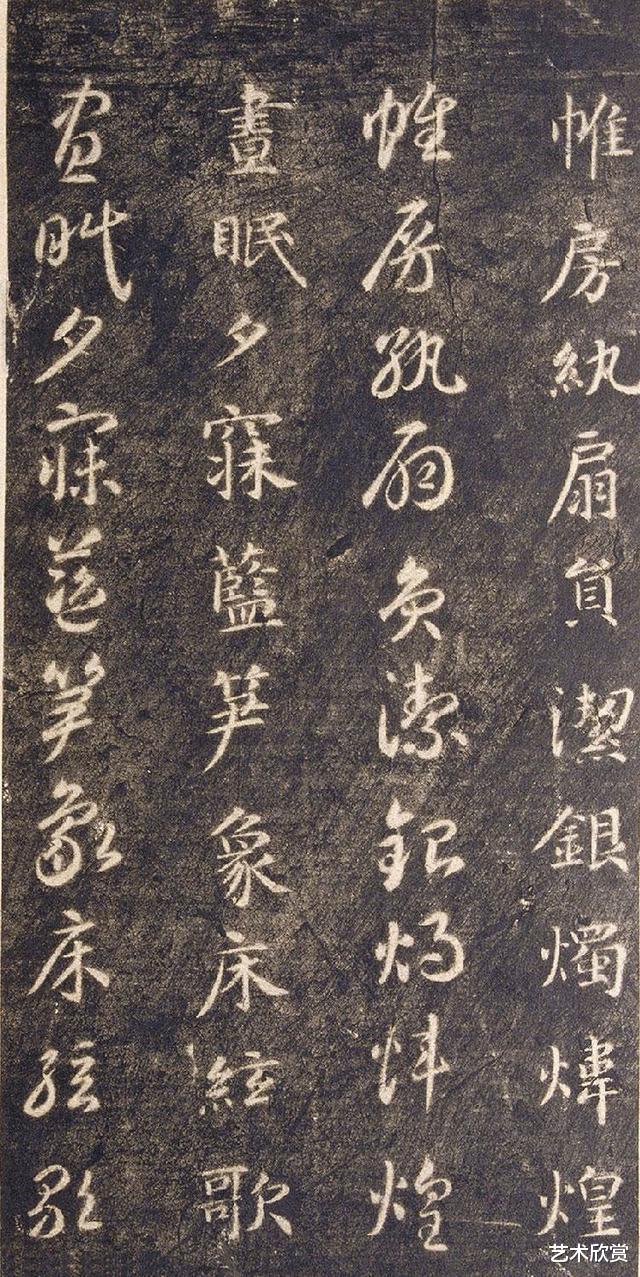 帷房紈扇員潔銀燭煒煌
帷房紈扇員潔銀燭煒煌
晝眠夕寐藍笋象床絃歌
晝眠夕寐藍笋象床絃歌
艺术欣赏